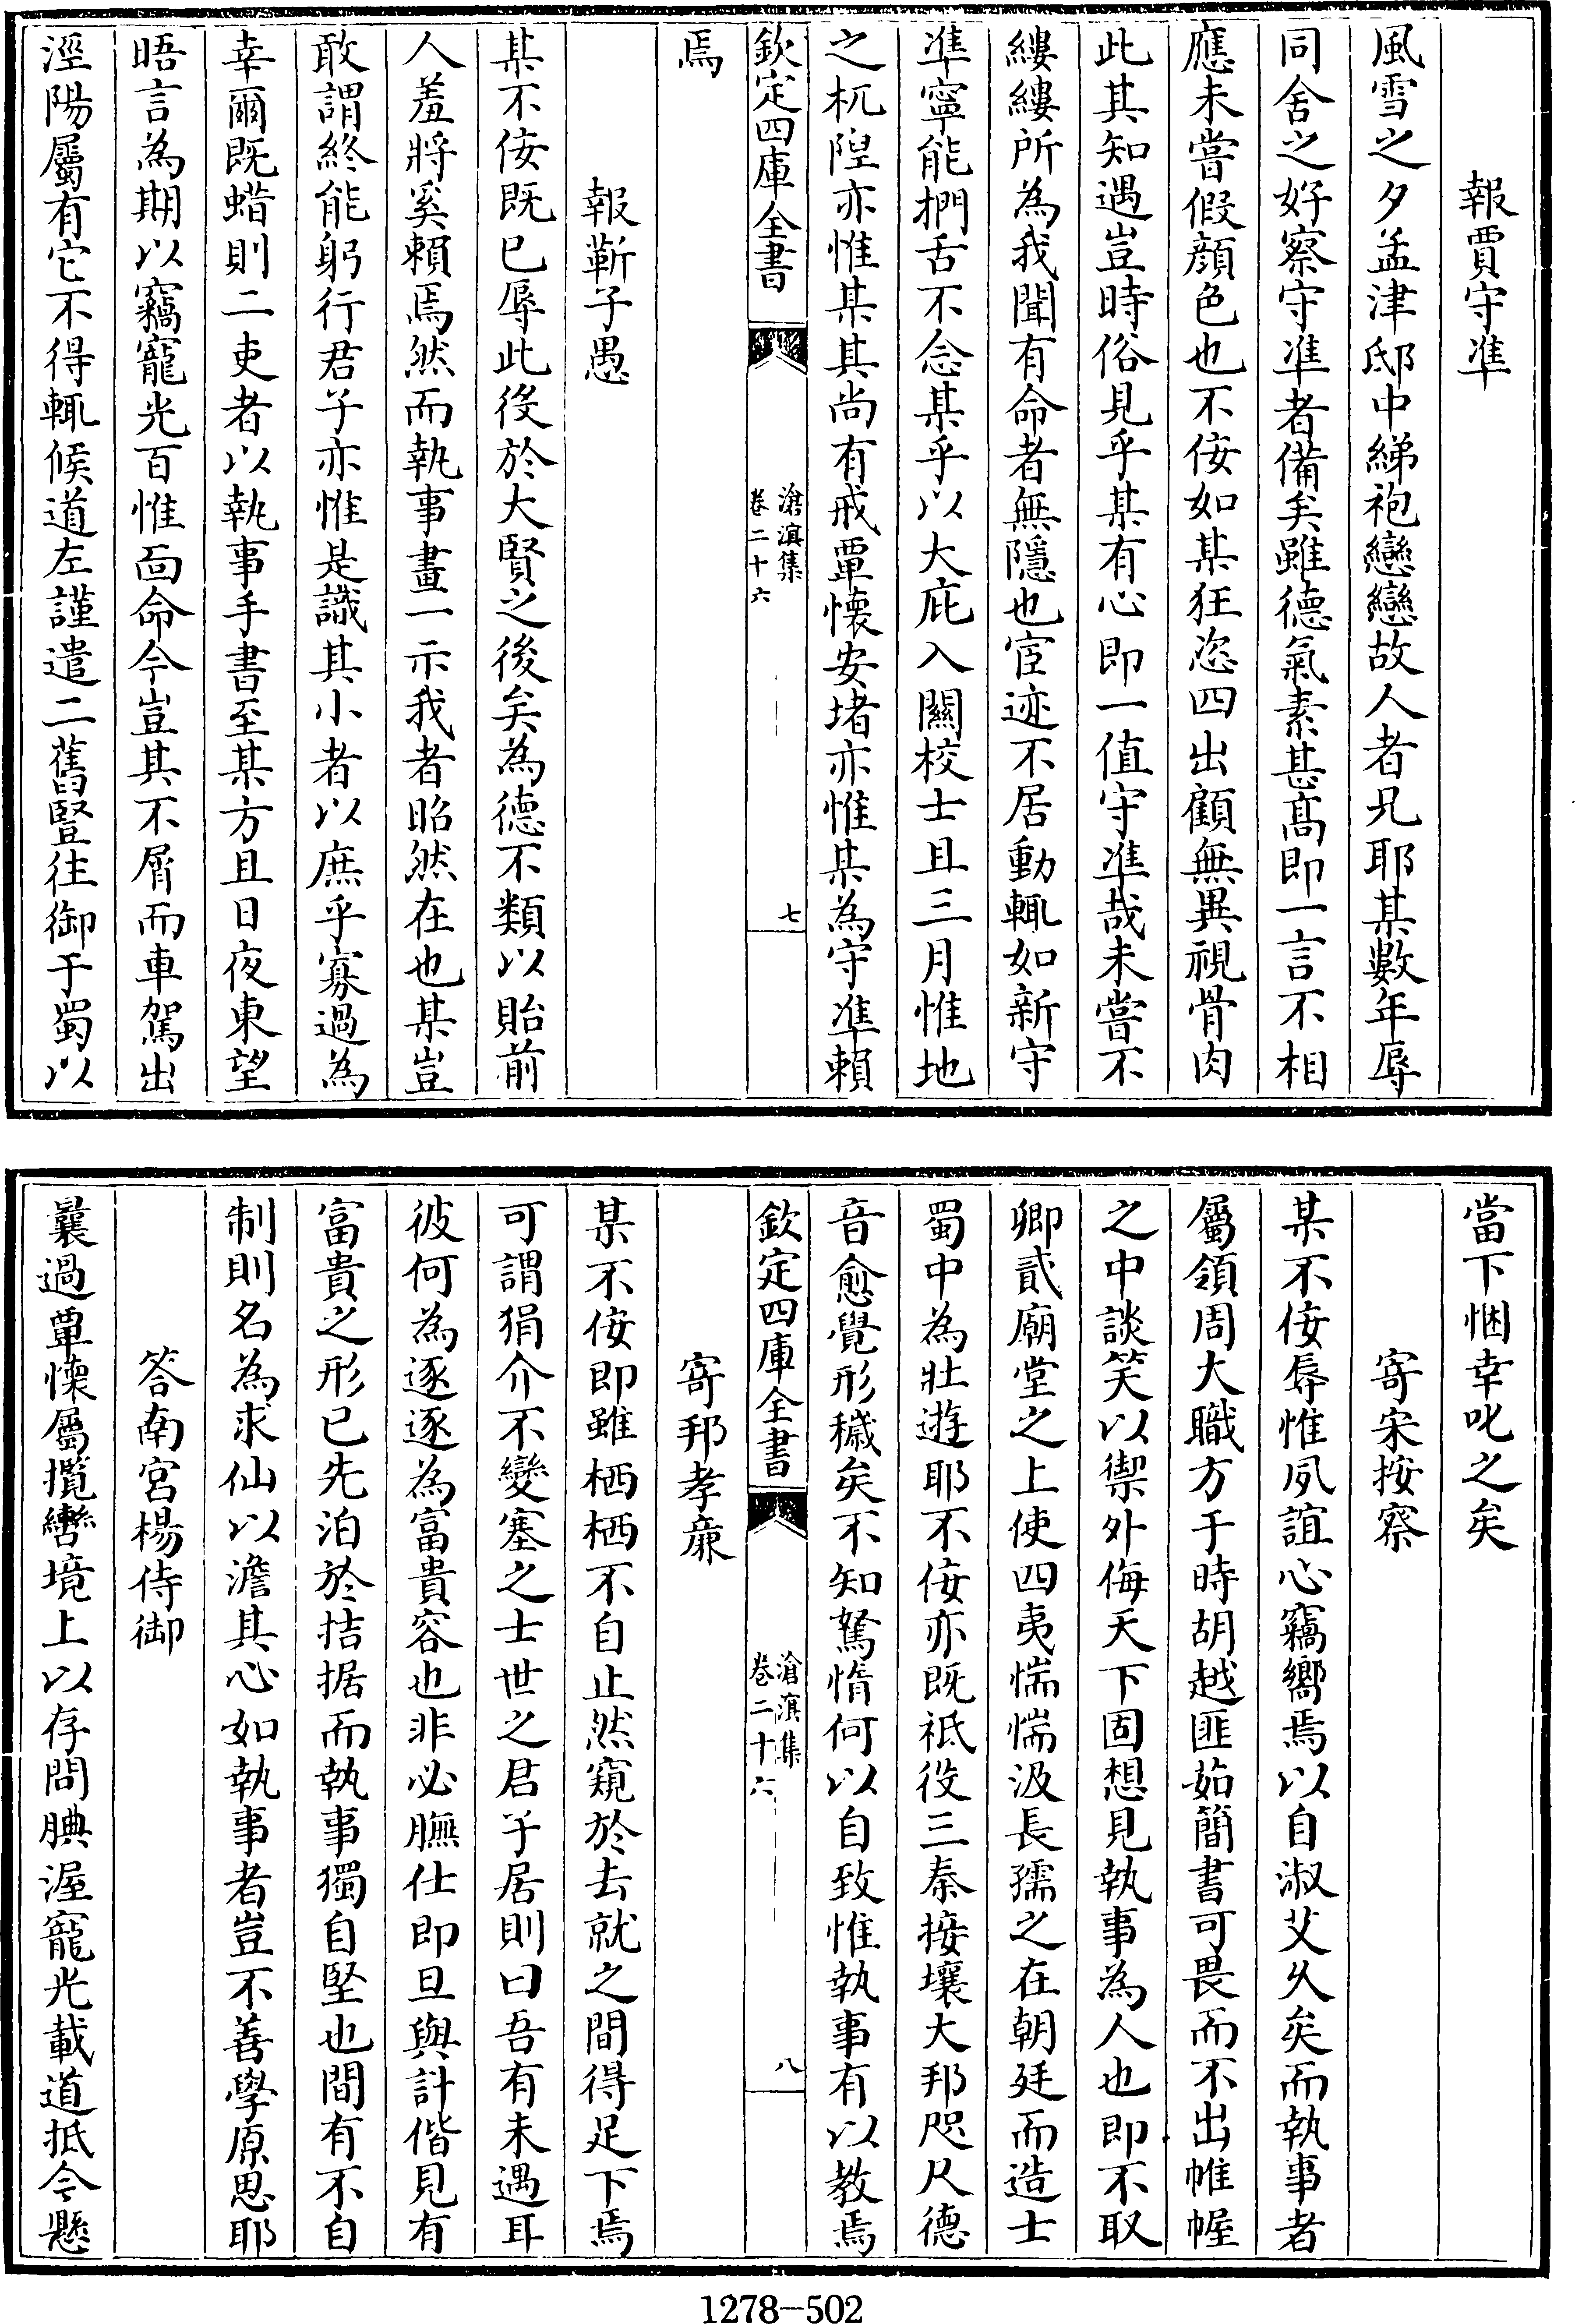 報賈守準
風雪之夕孟津邸中綈袍戀戀故人者兄耶某數年辱
同舍之好察守準者備矣雖德氣素甚髙即一言不相
應未嘗假顔色也不佞如某狂恣四出顧無異視骨肉
此其知遇豈時俗見乎某有心即一值守準哉未嘗不
縷縷所為我聞有命者無隱也宦迹不居動輒如新守
準寧能捫舌不念某乎以大庇入關校士且三月惟地
之杌隉亦惟某其尚有戒覃懐安堵亦惟某為守準賴
欽定四庫全書
滄溟集
卷二十六
七
焉
報靳子愚
某不佞既已辱此役於大賢之後矣為德不類以貽前
人羞將奚賴焉然而執事畫一示我者昭然在也某豈
敢謂終能躬行君子亦惟是識其小者以庶乎寡過為
幸爾既蜡則二吏者以執事手書至某方且日夜東望
晤言為期以竊寵光百惟靣命今豈其不屑而車駕出
涇陽屬有它不得輒候道左謹遣二舊豎往御于蜀以
當下悃幸叱之矣
寄宋按察
某不佞辱惟夙誼心竊嚮焉以自淑艾乆矣而執事者
屬領周大職方于時胡越匪茹簡書可畏而不出帷幄
之中談笑以禦外侮天下固想見執事為人也即不取
卿貳廟堂之上使四夷惴惴汲長孺之在朝廷而造士
蜀中為壯遊耶不佞亦既祗役三秦接壤大邦咫尺德
音愈覺形穢矣不知駑惰何以自致惟執事有以教焉
欽定四庫全書
滄溟集
卷二十六
八
寄邦孝亷
某不佞即雖栖栖不自止然窺於去就之間得足下焉
可謂狷介不變塞之士世之君子居則曰吾有未遇耳
彼何為逐逐為富貴容也非必膴仕即旦與計偕見有
富貴之形已先泊於拮据而執事獨自堅也間有不自
制則名為求仙以澹其心如執事者豈不善學原思耶
答南宮楊侍御
曩過覃懐屬攬轡境上以存問腆渥寵光載道抵今懸
1278-502